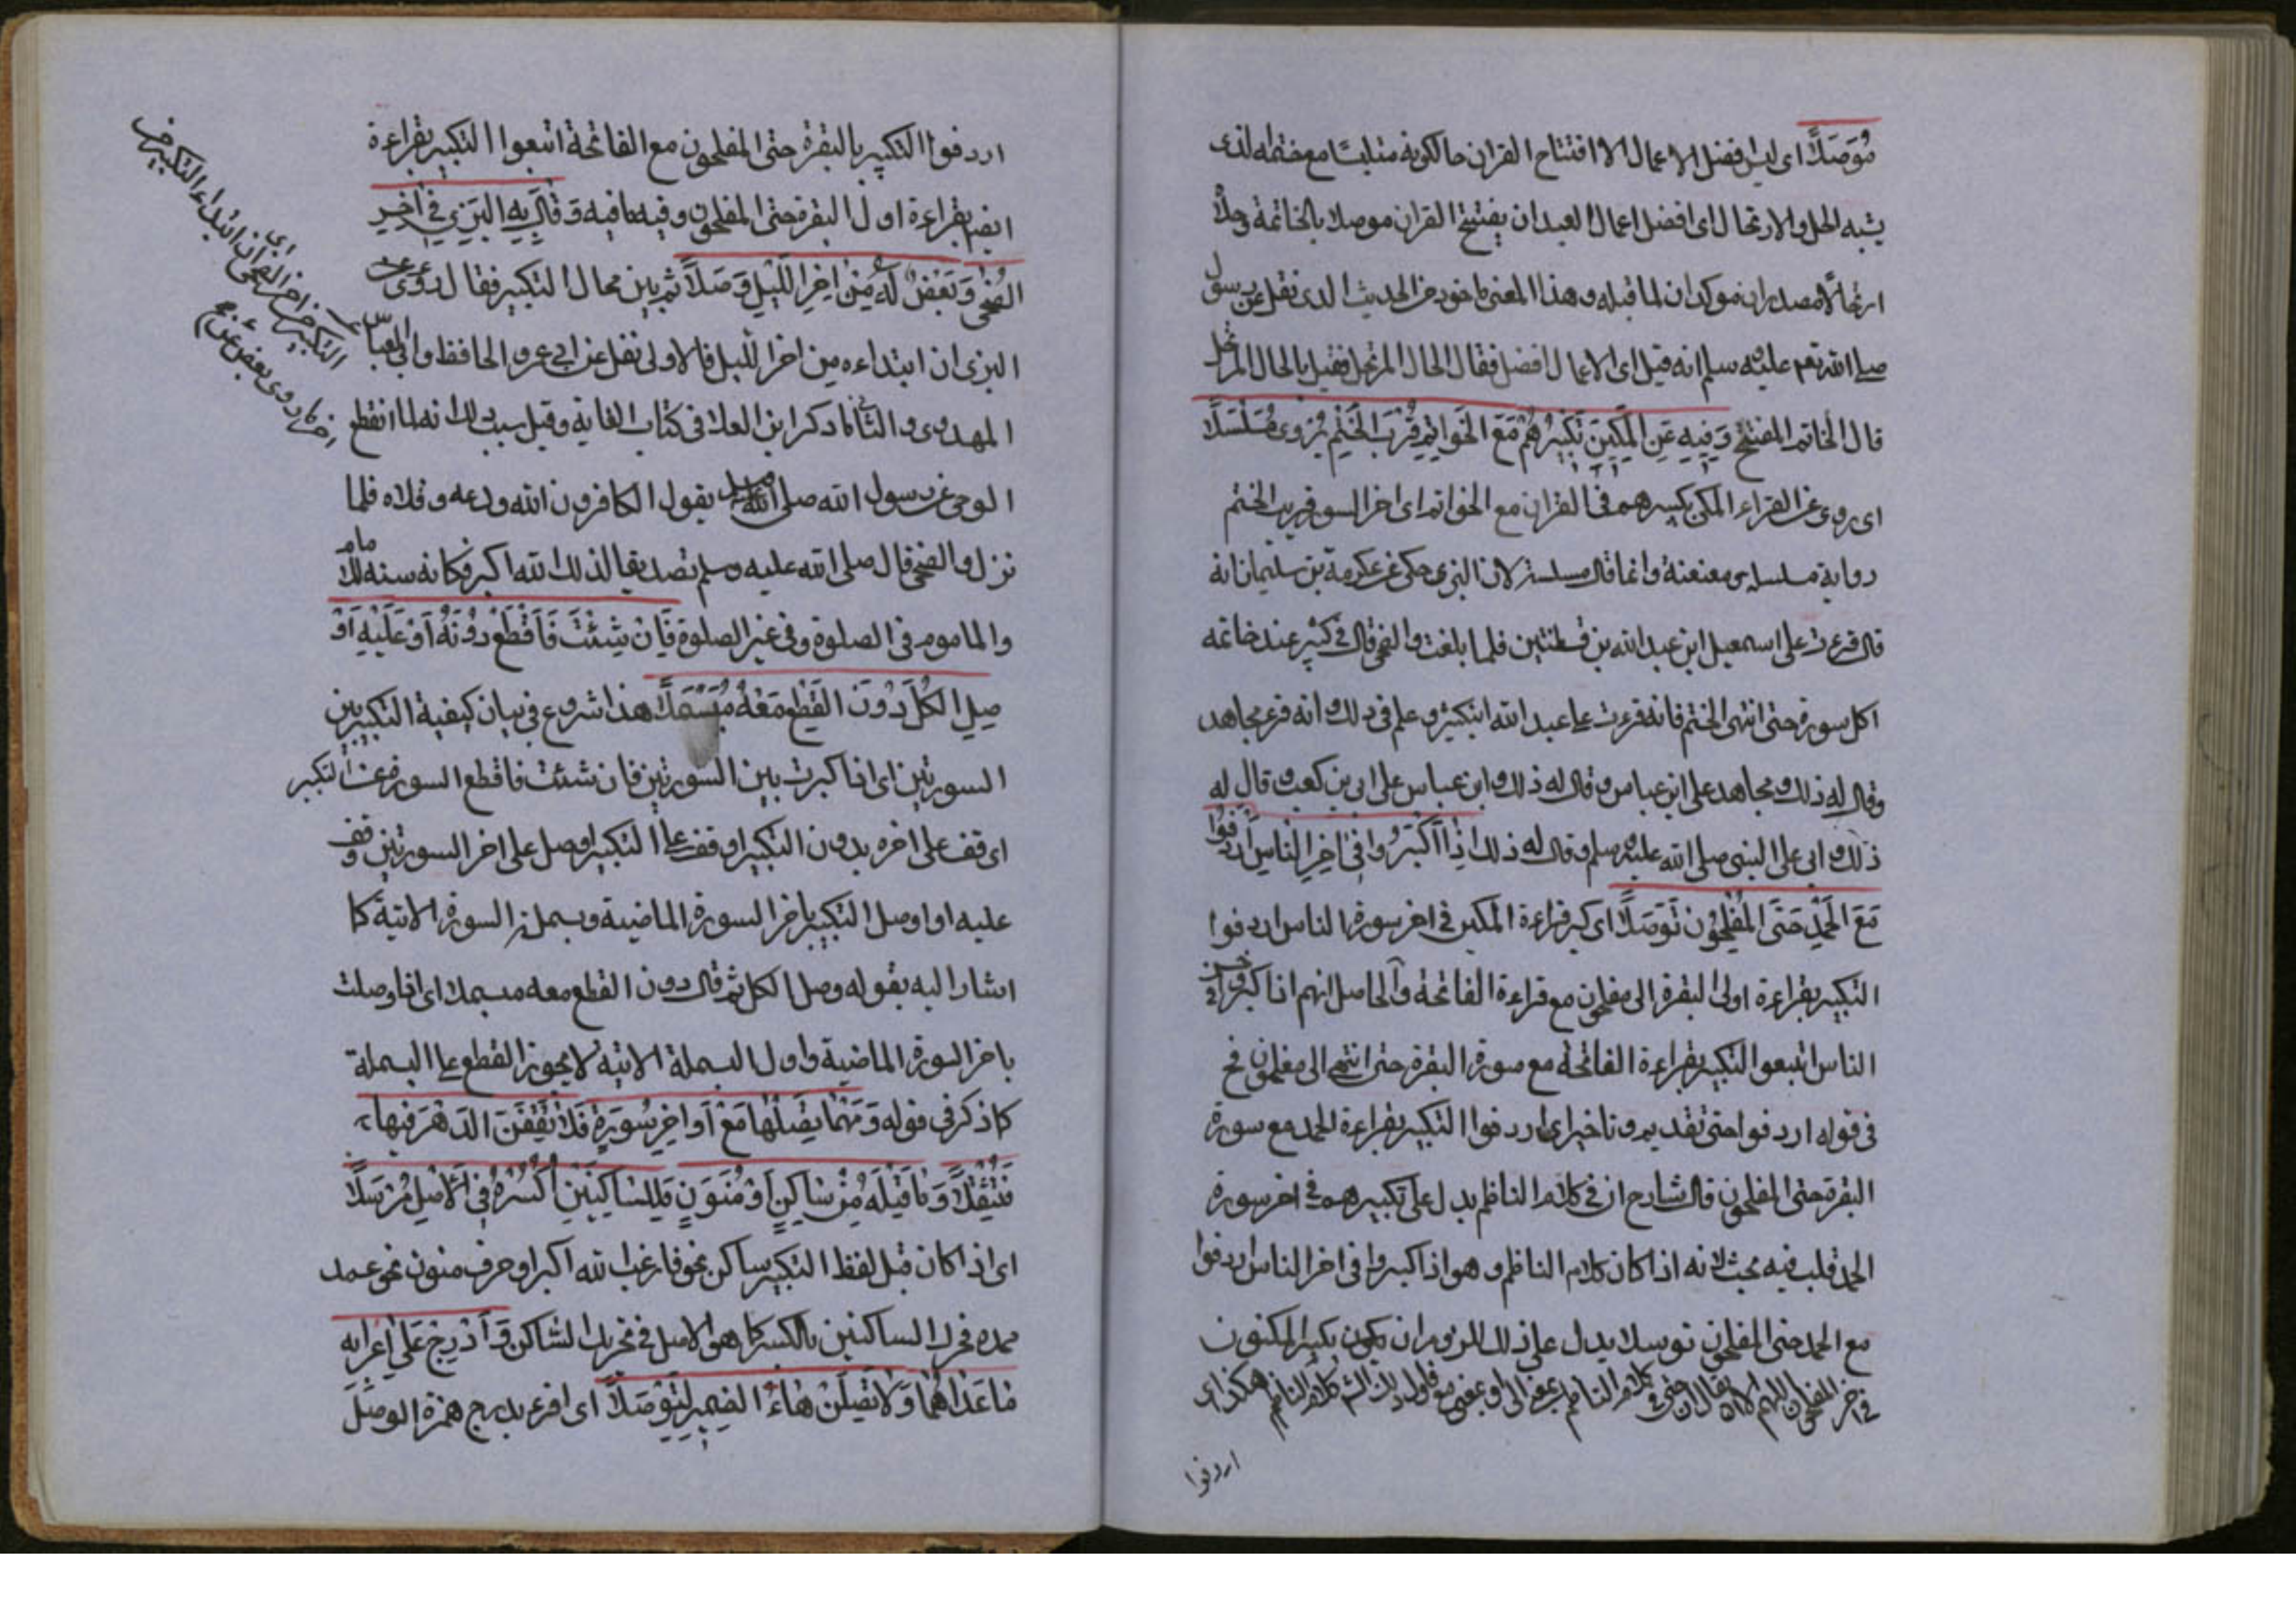 مُوَصَلًا اى ليس فضل الاعمال الا افتتاح القران حالكونه متلبسًا مع ختمه لذى
يشبه الحل والارتحال اى افضل اعمال العبد ان يفتتح القران موصلا بالخاتمة وحلًّا
ارتحالًا مصدران موكدان لما قبله وهذا المعنى ماخوذ من الحديث الذى نقل عن رسول
صلى الله تع عليه وسلم انه قيل اى الاعمال افضل فقال الحال المرتحل فقيل ما الحال المرتحل
قال الخاتم المفتتح وَفِيهِ عَنِ المَكِّينَ تَكْبِيرُهُمْ مَعَ الخَوَاتِمِ قُرْبَ الخَتْمِ يُرْوَى مُسَلْسَلًا
اى روى عن القراء المكى تكبيرهم فى القران مع الخواتم اى اخر السور قريب الختم
رواية مسلسلا معنعنة وانما قال مسلسلة لان البزى حكى عن عكرمة بن سليمان انه
قال قرءت على اسمعيل ابن عبد الله بن قسطنتين فلما بلغت والضحى قال لى كبر عند خاتمه
كل سورة حتى انتهى الختم فانه قرءت على عبد الله ابن كثير وعلم فى ذلك وانه قرء مجاهد
وقال له ذلك ومجاهد على ابن عباس وقال له ذلك وابن عباس على ابى بن كعب وقال له
ذلك وابى على النبى صلى الله عليه وسلم وقال له ذلك اِذَا كَبَّرُوا فِى اٰخِرِ النَّاسِ اَرْدَفُوا
مَعَ الحَمْدِ حَتَّى المُفْلِحُونَ تَوَصُّلًا اى كبر قراءة المكين فى اخر سورة الناس اردفوا
التكبير بقراءة اولى البقرة الى مفلحون مع قراءة الفاتحة والحاصل انهم اذا كبروا فى اخر
الناس اتبعوا التكبير بقراءة الفاتحة مع سورة البقرة حتى انتهى الى مفلحون فح
فى قوله اردفوا حتى تقديم وتاخير اى اردفوا التكبير بقراءة الحمد مع سورة
البقرة حتى المفلحون قال شارح ان فى كلام الناظم يدل على تكبيرهم فى اخر سورة
الحمد قلب فيه بحث لانه اذا كان كلام الناظم وهو اذا كبروا فى اخر الناس اردفوا
مع الحمد حتى المفلحون توسلا يدل على ذلك لزم ان يكون تكبير المكيون
فى اخر المفلحون اللهم الا ان يقال ان حتى فى كلام الناظم بمعنى الى او بمعنى مع كلام الناظم هكذا اى
اردفوا
اردفوا التكبير بالبقرة حتى المفلحون مع الفاتحة اتبعوا التكبير بقراءة
ايضا بقراءة اول البقرة حتى المفلحون وفيه ما فيه وَقَالَ بِهِ البَزِّى فِى اٰخِرِ
الضُّحٰى وَبَعْضٌ لَهُ مِنْ اٰخِرِ اللَّيْلِ وَصَّلًا ثم بين محال التكبير فقال روى عن
البزى ان ابتداءه من اخر الليل فالاولى نقل عن ابى عمرو الحافظ وابى العباس
المهدوى والثانى ما ذكر ابن العلا فى كتاب الغاية وقيل سبب ذلك انه لما انقطع
الوحى عن رسول الله صلى الله يقول الكافرون الله ودعه وقلاه فلما
نزل والضحى قال صلى الله عليه وسلم تصديقا لذلك الله اكبر فكانه سنة للامام
والماموم فى الصلوة وفى غير الصلوة فَاِنْ شِئْتَ فَاقْطَعْ دُونَهُ اَوْ عَلَيْهِ اَوْ
صِلِ الكُلَّ دُونَ القَطْعِ مَعْهُ مُبَسْمِلًا هذا شروع فى بيان كيفية التكبير بين
السورتين اى اذا كبرت بين السورتين فان شئت فاقطع السورة عن التكبير
اى قف على اخره بدون التكبير او قف على التكبير او صل على اخر السورتين وقف
عليه او اوصل التكبير باخر السورة الماضية وبسملة السورة الاتية كما
اشار اليه بقوله وصل الكل ثم قال دون القطع معه مبسملا اى اذا وصلت
باخر السورة الماضية واول البسملة الاتية لا يجوز القطع على البسملة
كما ذكر فى قوله وَمَهْمَا تَصِلْهَا مَعْ اَوَاخِرِ سُورَةٍ فَلَا تَقِفَنَّ الدَّهْرَ فِيهَا
فَتَثْقُلَا وَمَا قَبْلَهُ مِنْ سَاكِنٍ اَوْ مُنَوَّنٍ فَلِلسَّاكِنَيْنِ اكْسِرْهُ فِى الاَصْلِ مُرْسَلًا
اى اذا كان قبل لفظ التكبير ساكن نحو فارغب الله اكبر او حرف منون نحو عمد
ممدة فحرك الساكنين بالكسر كما هو الاصل فى تحريك الساكن وَاَدْرِجْ عَلَى اِعْرَابِهِ
مَا عَدَاهُمَا وَلَا تَصِلَنْ هَاءَ الضَّمِيرِ لِتُوصَلَا اى اقرء بدرج همزة الوصل
اى ان ابتداء التكبير من
التكبير من اخر الضحى
اخر كما روى بعض عن